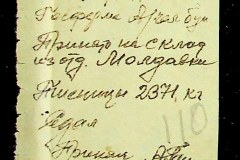 Госферма
Принято на склад
из отд. Молдавки
Пшеницы 2371, кг
Сдал
110
Принял